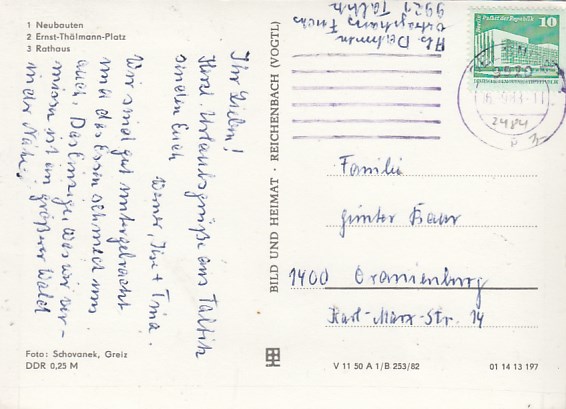 1 Neubauten
2 Ernst-Thälmann-Platz
3 Rathaus
Ihr Lieben!
Herzl. Urlaubsgrüße aus Taltitz
senden Euch
Werner, Ina + Tina.
Wir sind gut untergebracht
und das Essen schmeckt uns
auch. Das einzige, was wir ver-
missen ist ein größerer Wald
in der Nähe.
Foto: Schovanek, Greiz
DDR 0,25 M
BILD UND HEIMAT · REICHENBACH (VOGTL)
9921 Taltitz
Palast der Republik
10
Familie
Günter Baur
1400 Oranienburg
Karl-Marx-Str. 14
V 11 50 A 1/B 253/82
01 14 13 197